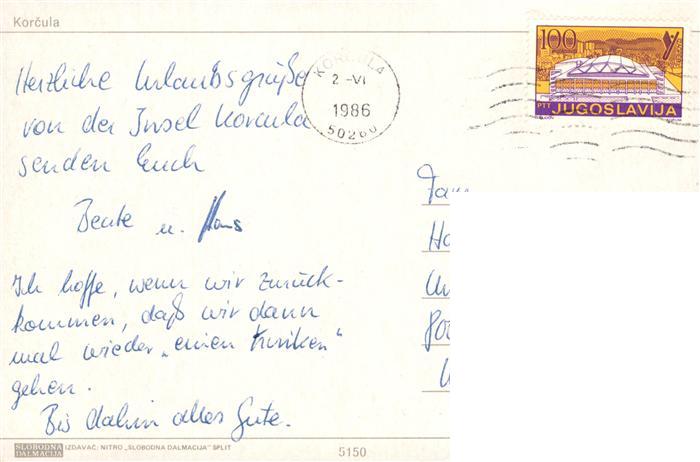 Korčula
Herzliche Urlaubsgrüße
von der Insel Korcula
senden Euch
Beate u. Hans
Ich hoffe, wenn wir zurück-
kommen, daß wir dann
mal wieder „einen trinken"
gehen.
Bis dahin alles Gute.
KORČULA
2 -VI
1986
50260
100
PTT JUGOSLAVIJA
Fam
SLOBODNA
DALMACIJA
IZDAVAČ: NITRO „SLOBODNA DALMACIJA" SPLIT
5150